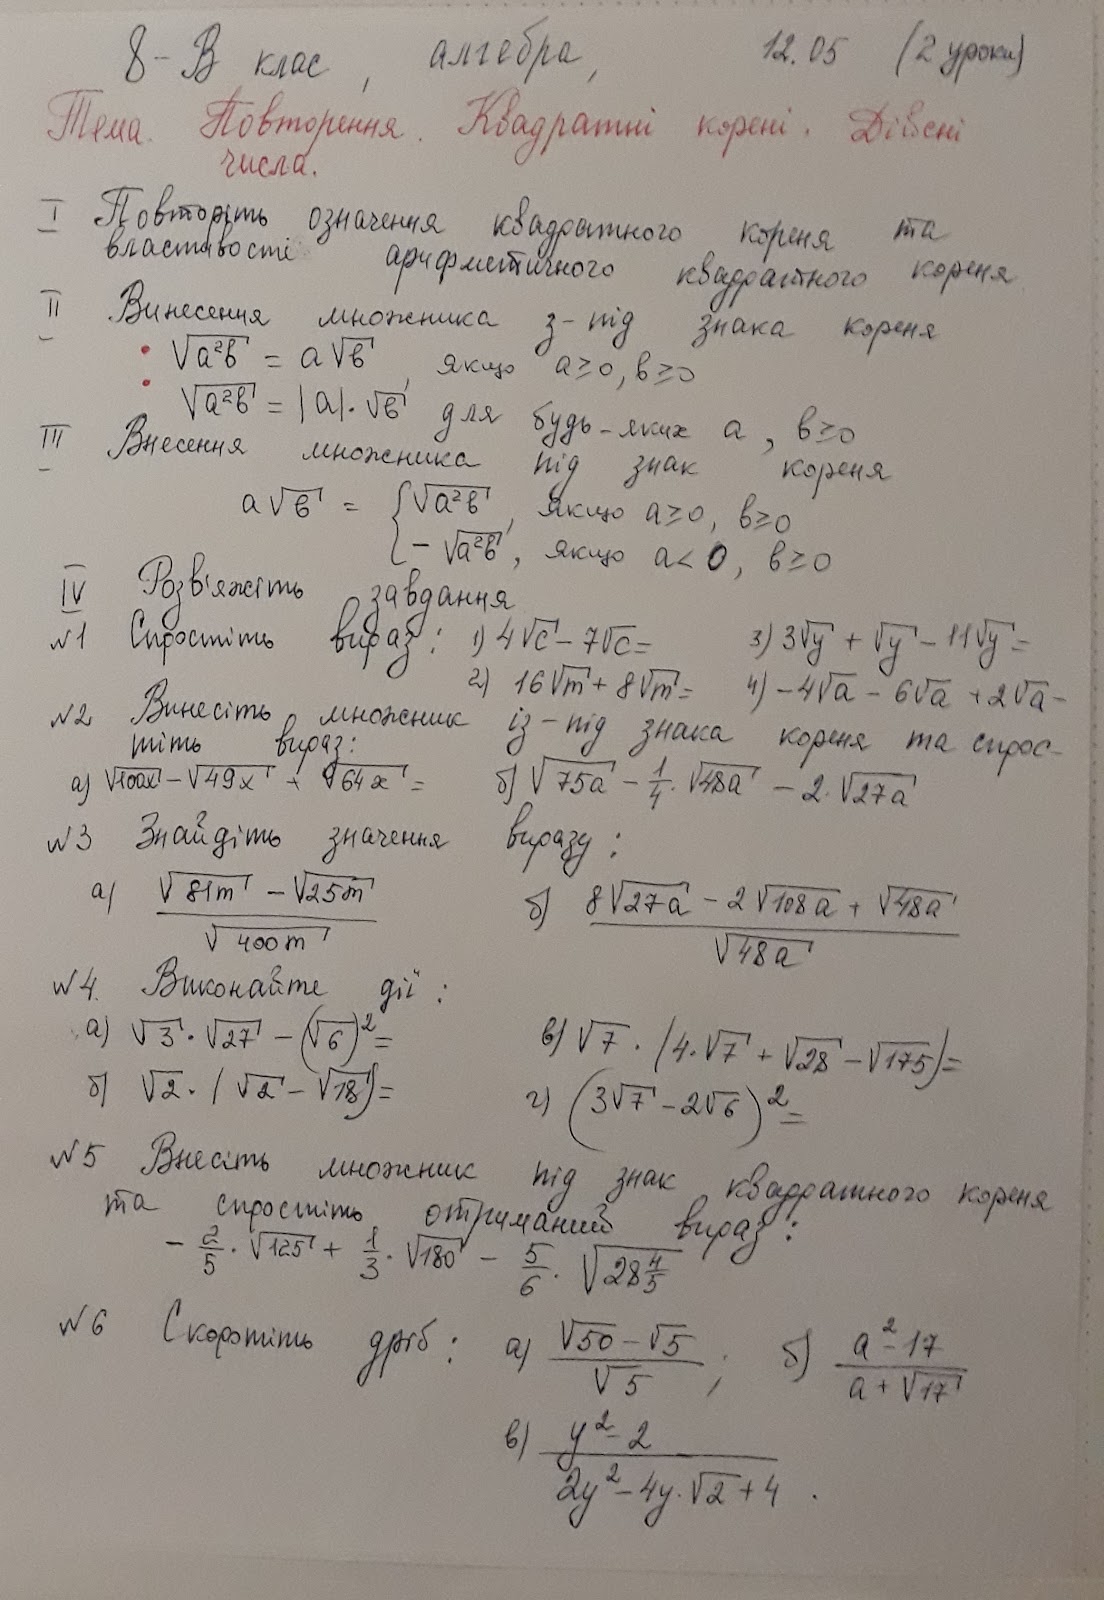 8-В клас, алгебра, 12.05 (2 уроки)
Тема. Повторення. Квадратні корені. Дійсні
числа.
I Повторіть означення квадратного кореня та
властивості арифметичного квадратного кореня
II Винесення множника з-під знака кореня
• √(a²b) = a√b, якщо a≥0, b≥0
• √(a²b) = |a|·√b для будь-яких a, b≥0
III Внесення множника під знак кореня
a√b = { √(a²b), якщо a≥0, b≥0
- √(a²b), якщо a<0, b≥0
IV Розв'яжіть завдання
№1 Спростіть вираз: 1) 4√c - 7√c = 3) 3√y + √y - 11√y =
2) 16√m + 8√m = 4) -4√a - 6√a + 2√a -
№2 Винесіть множник із-під знака кореня та спрос-
тіть вираз:
а) √(100x) - √(49x) + √(64x) = б) √(75a) - 1/4·√(48a) - 2·√(27a)
№3 Знайдіть значення виразу:
а) (√(81m) - √(25m))/√(400m) б) (8√(27a) - 2√(108a) + √(48a))/√(48a)
№4. Виконайте дії:
а) √3·√27 - (√6)² = в) √7·(4·√7 + √28 - √175) =
б) √2·(√2 - √18) = г) (3√7 - 2√6)² =
№5 Внесіть множник під знак квадратного кореня
та спростіть отриманий вираз:
- 2/5·√125 + 1/3·√180 - 5/6·√(28 4/5)
№6 Скоротіть дріб: а) (√50 - √5)/√5; б) (a² - 17)/(a + √17)
в) (y² - 2)/(2y² - 4y·√2 + 4).